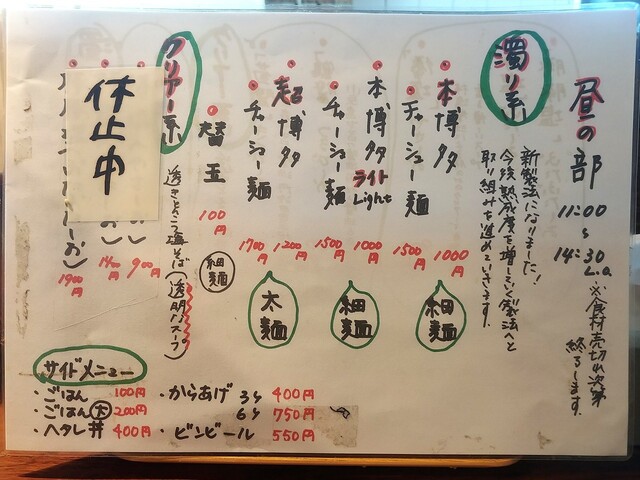 昼の部
11:00
〜
14:30
L.o
※食材売切れ次第
終了します。
濁り系
新製法になりました!
今後熟成度を増していく製法へと
取り組みを進めていきます。
本博多 1000円
チャーシュー麺 1500円
細麺
本博多ライト Light 1000円
チャーシュー麺 1500円
細麺
超博多 1200円
チャーシュー麺 1700円
太麺
替玉 100円
細麺
クリアー系
(透明なスープ)
休止中
900円
1400円
1900円
サイドメニュー
・ごはん 100円
・ごはん大 200円
・ヘタレ丼 400円
・からあげ 3ヶ 400円
6ヶ 750円
・ビンビール 550円